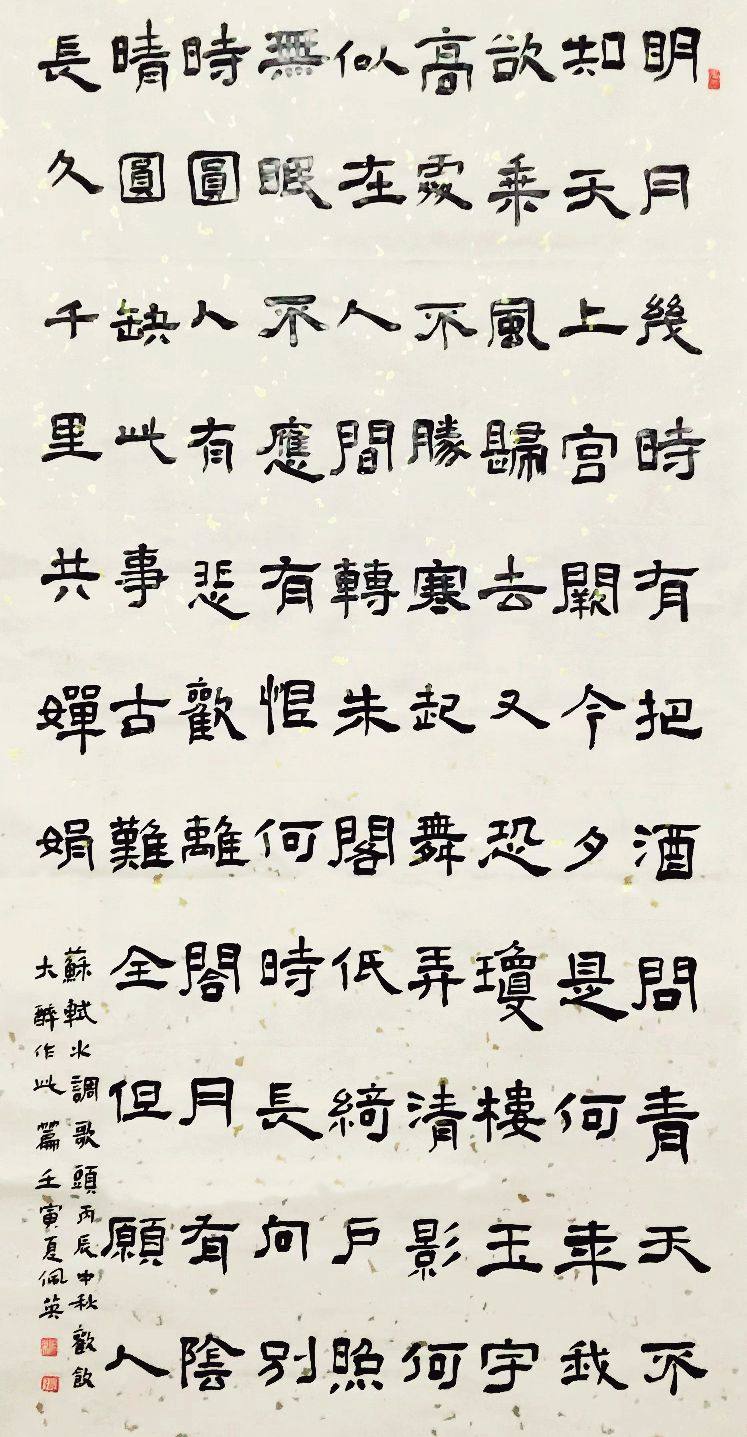 明月幾時有把酒問青天不
知天上宮闕今夕是何年我
欲乘風歸去又恐瓊樓玉宇
高處不勝寒起舞弄清影何
似在人間轉朱閣低綺戶照
無眠不應有恨何時長向別
時圓人有悲歡離閤月有陰
晴圓缺此事古難全但願人
長久千里共嬋娟
蘇軾水調歌頭丙辰中秋歡飲
大醉作此篇壬寅夏佩英